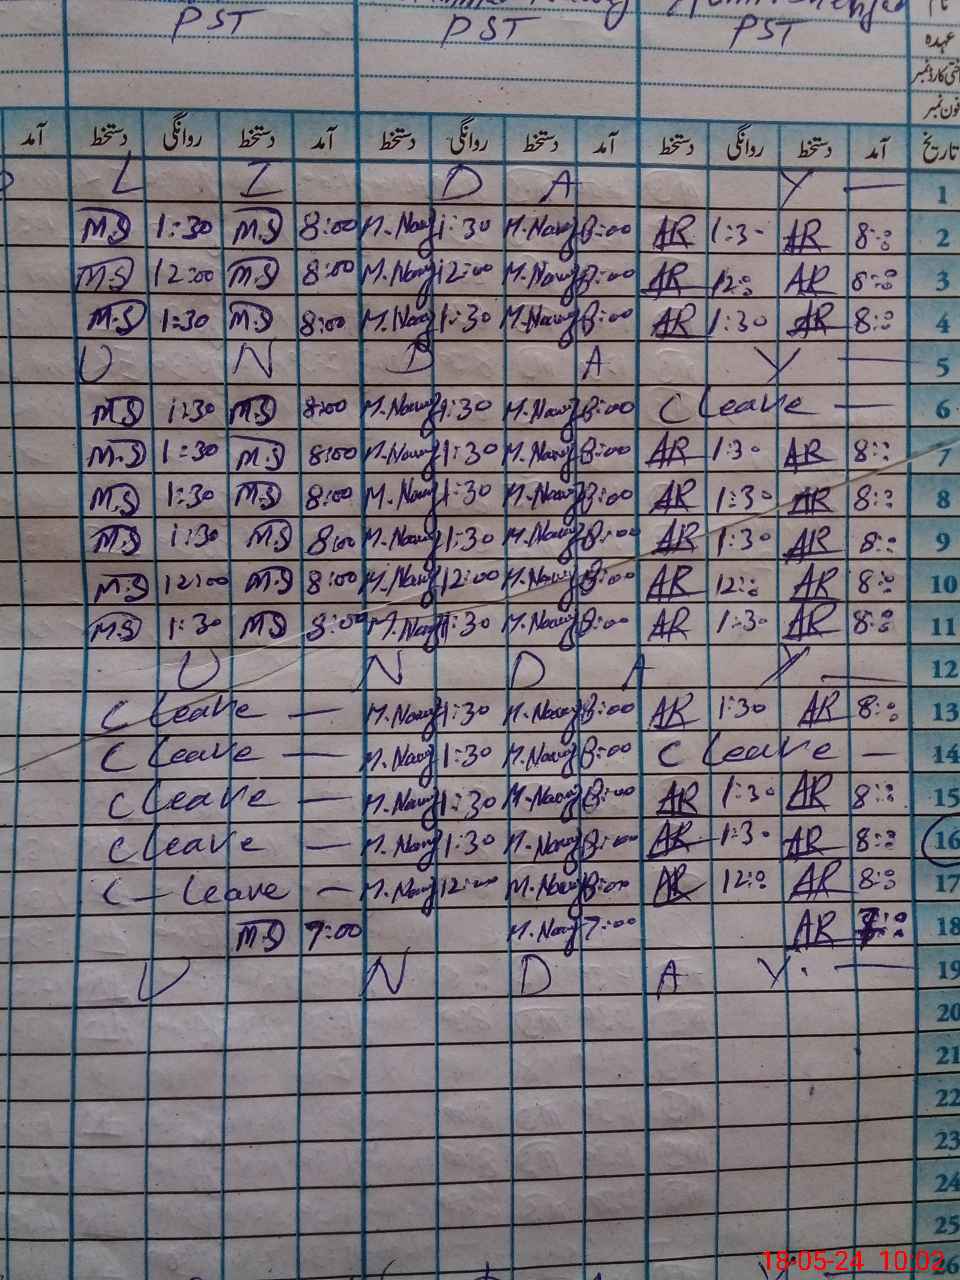 PST PST PST
نام
عہدہ
فون نمبر
آمد دستخط روانگی دستخط آمد دستخط روانگی دستخط آمد دستخط روانگی دستخط آمد تاریخ
L I D A Y — 1
M.S 1:30 M.S 8:00 M.Nawaz 1:30 M.Nawaz 8:00 AR 1:30 AR 8:00 2
M.S 12:00 M.S 8:00 M.Nawaz 12:00 M.Nawaz 8:00 AR 12:00 AR 8:00 3
M.S 1:30 M.S 8:00 M.Nawaz 1:30 M.Nawaz 8:00 AR 1:30 AR 8:00 4
U N D A Y — 5
M.S 1:30 M.S 8:00 M.Nawaz 1:30 M.Nawaz 8:00 C leave — 6
M.S 1:30 M.S 8:00 M.Nawaz 1:30 M.Nawaz 8:00 AR 1:30 AR 8:00 7
M.S 1:30 M.S 8:00 M.Nawaz 1:30 M.Nawaz 8:00 AR 1:30 AR 8:00 8
M.S 1:30 M.S 8:00 M.Nawaz 1:30 M.Nawaz 8:00 AR 1:30 AR 8:00 9
M.S 12:00 M.S 8:00 M.Nawaz 12:00 M.Nawaz 8:00 AR 12:00 AR 8:00 10
M.S 1:30 M.S 8:00 M.Nawaz 1:30 M.Nawaz 8:00 AR 1:30 AR 8:00 11
U N D A Y — 12
C leave — M.Nawaz 1:30 M.Nawaz 8:00 AR 1:30 AR 8:00 13
C leave — M.Nawaz 1:30 M.Nawaz 8:00 C leave — 14
C leave — M.Nawaz 1:30 M.Nawaz 8:00 AR 1:30 AR 8:00 15
C leave — M.Nawaz 1:30 M.Nawaz 8:00 AR 1:30 AR 8:00 16
C - leave — M.Nawaz 12:00 M.Nawaz 8:00 AR 12:00 AR 8:00 17
M.S 7:00 M.Nawaz 7:00 AR 7:00 18
U N D A Y. — 19
20
21
22
23
24
25
26
18-05-24 10:02